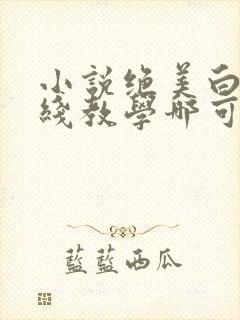 小說絕美白
綫教學哪可
藍藍西瓜